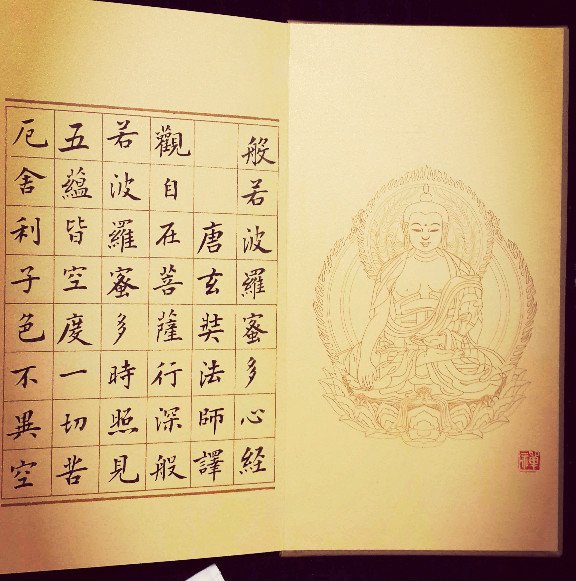 般若波羅蜜多心經
唐玄奘法師譯
觀自在菩薩行深般
若波羅蜜多時照見
五蘊皆空度一切苦
厄舍利子色不異空